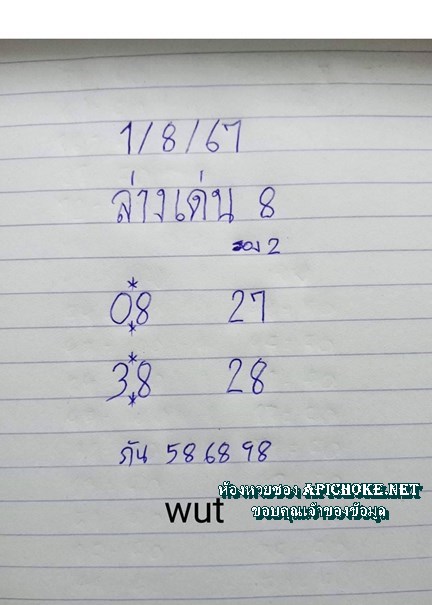 1/8/67
ล่างเด่น 8
รอง 2
08 27
38 28
กัน 58 68 98
ห้องหวยซอง APICHOKE.NET
wut
ขอบคุณเจ้าของข้อมูล